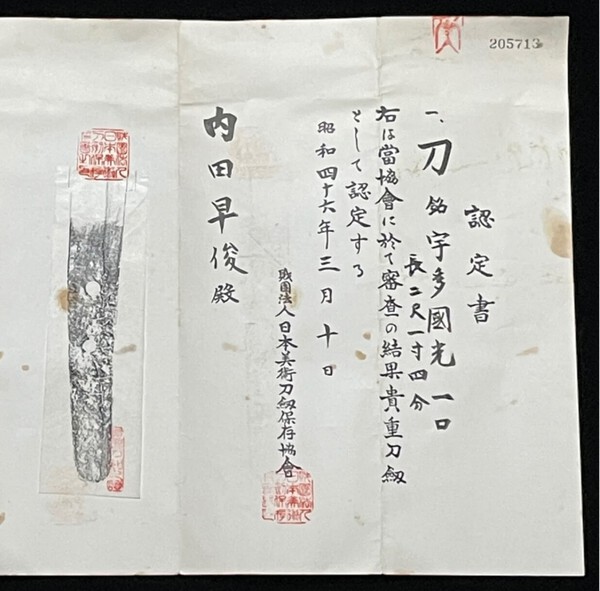 205713
認定書
一、刀 銘 宇多國光 一口
長二尺一寸四分
右は當協會に於て審査の結果貴重刀剱
として認定する
昭和四十六年三月十日
財團法人日本美術刀剱保存協會
内田早俊殿